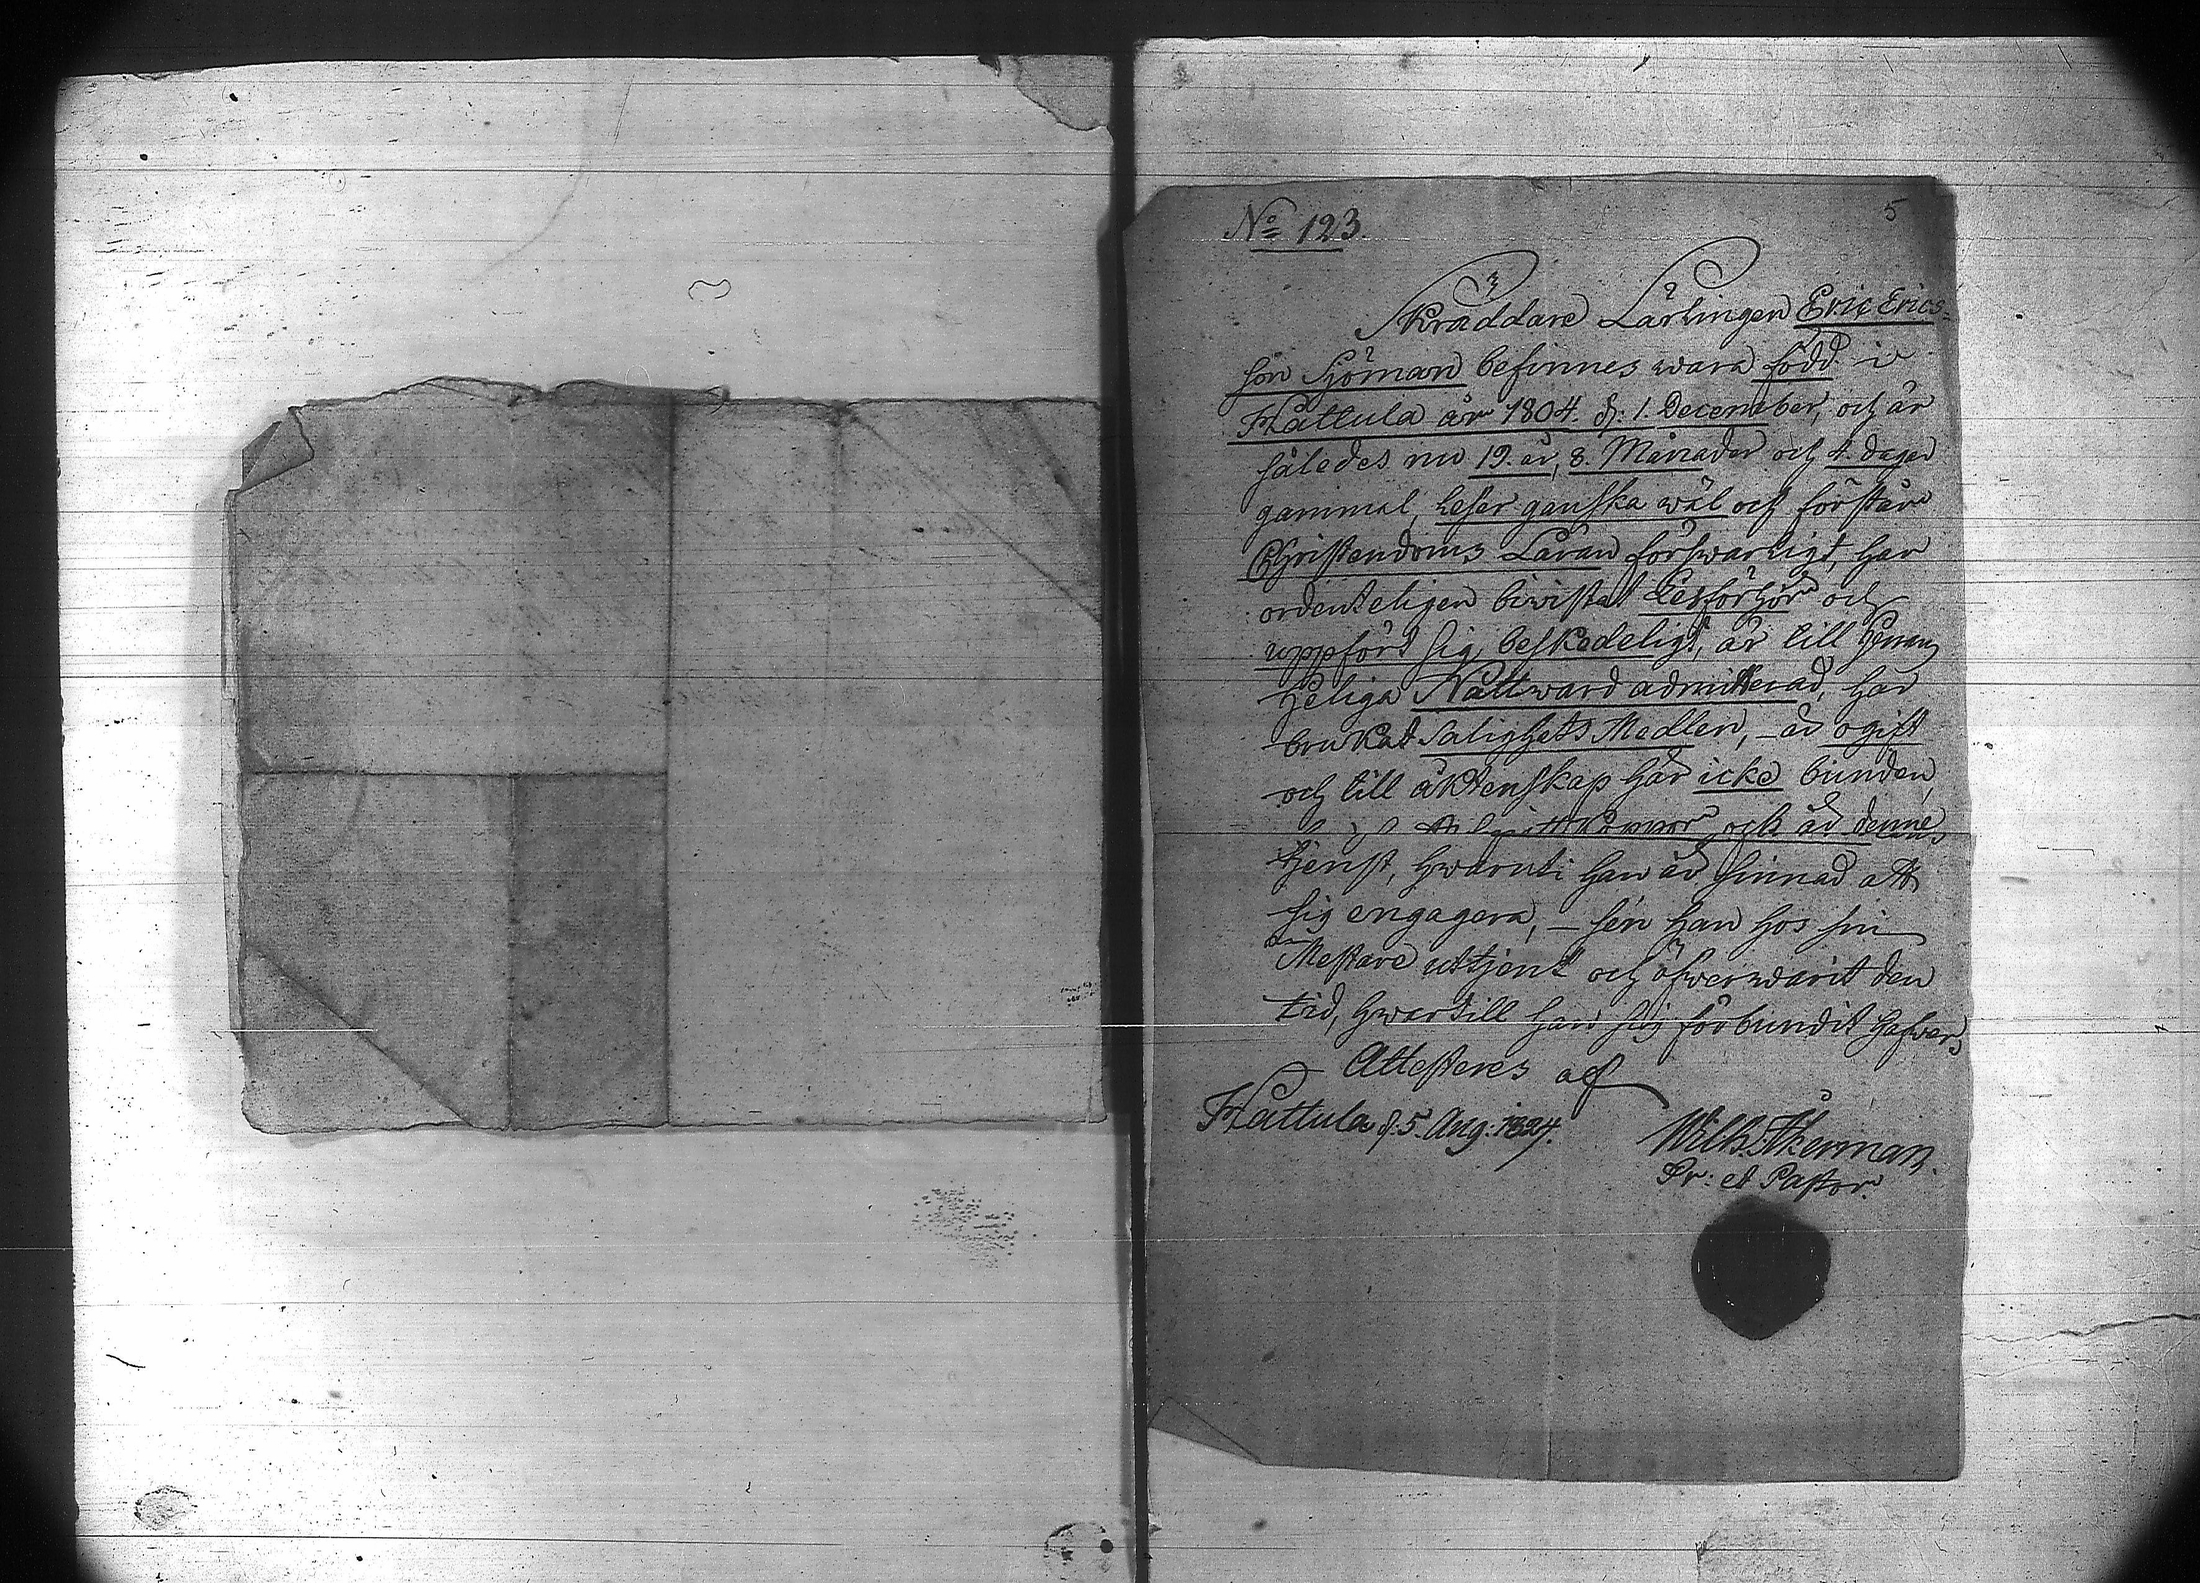 5
No 123.
Skräddare Lärlingen Eric Erics-
son Sjöman befinnes wara född i
Hattula år 1804. d: 1. December, och är
således nu 19. år, 8. Månader och 4. dagar
gammal, Läser ganska wäl och förstår
Christendoms Läran förswarligt, har
ordenteligen biwistat Läsförhör och
uppfört sig beskedeligt, är till Herrans
Heliga Nattward admitterad, har
brukat Salighets Medlen, – är ogift
och till äktenskap här icke bunden,
haft koppor och är denne
tjenst, hwaruti han är sinnad att
sig engagera, – sen han hos sin
Mästare uttjent och öfwerwarit den
tid, hwartill han sig förbundit hafwer,
Attesteres af
Hattula d. 5. Aug: 1824.
Wilh. Åkerman.
Pr: et Pastor.